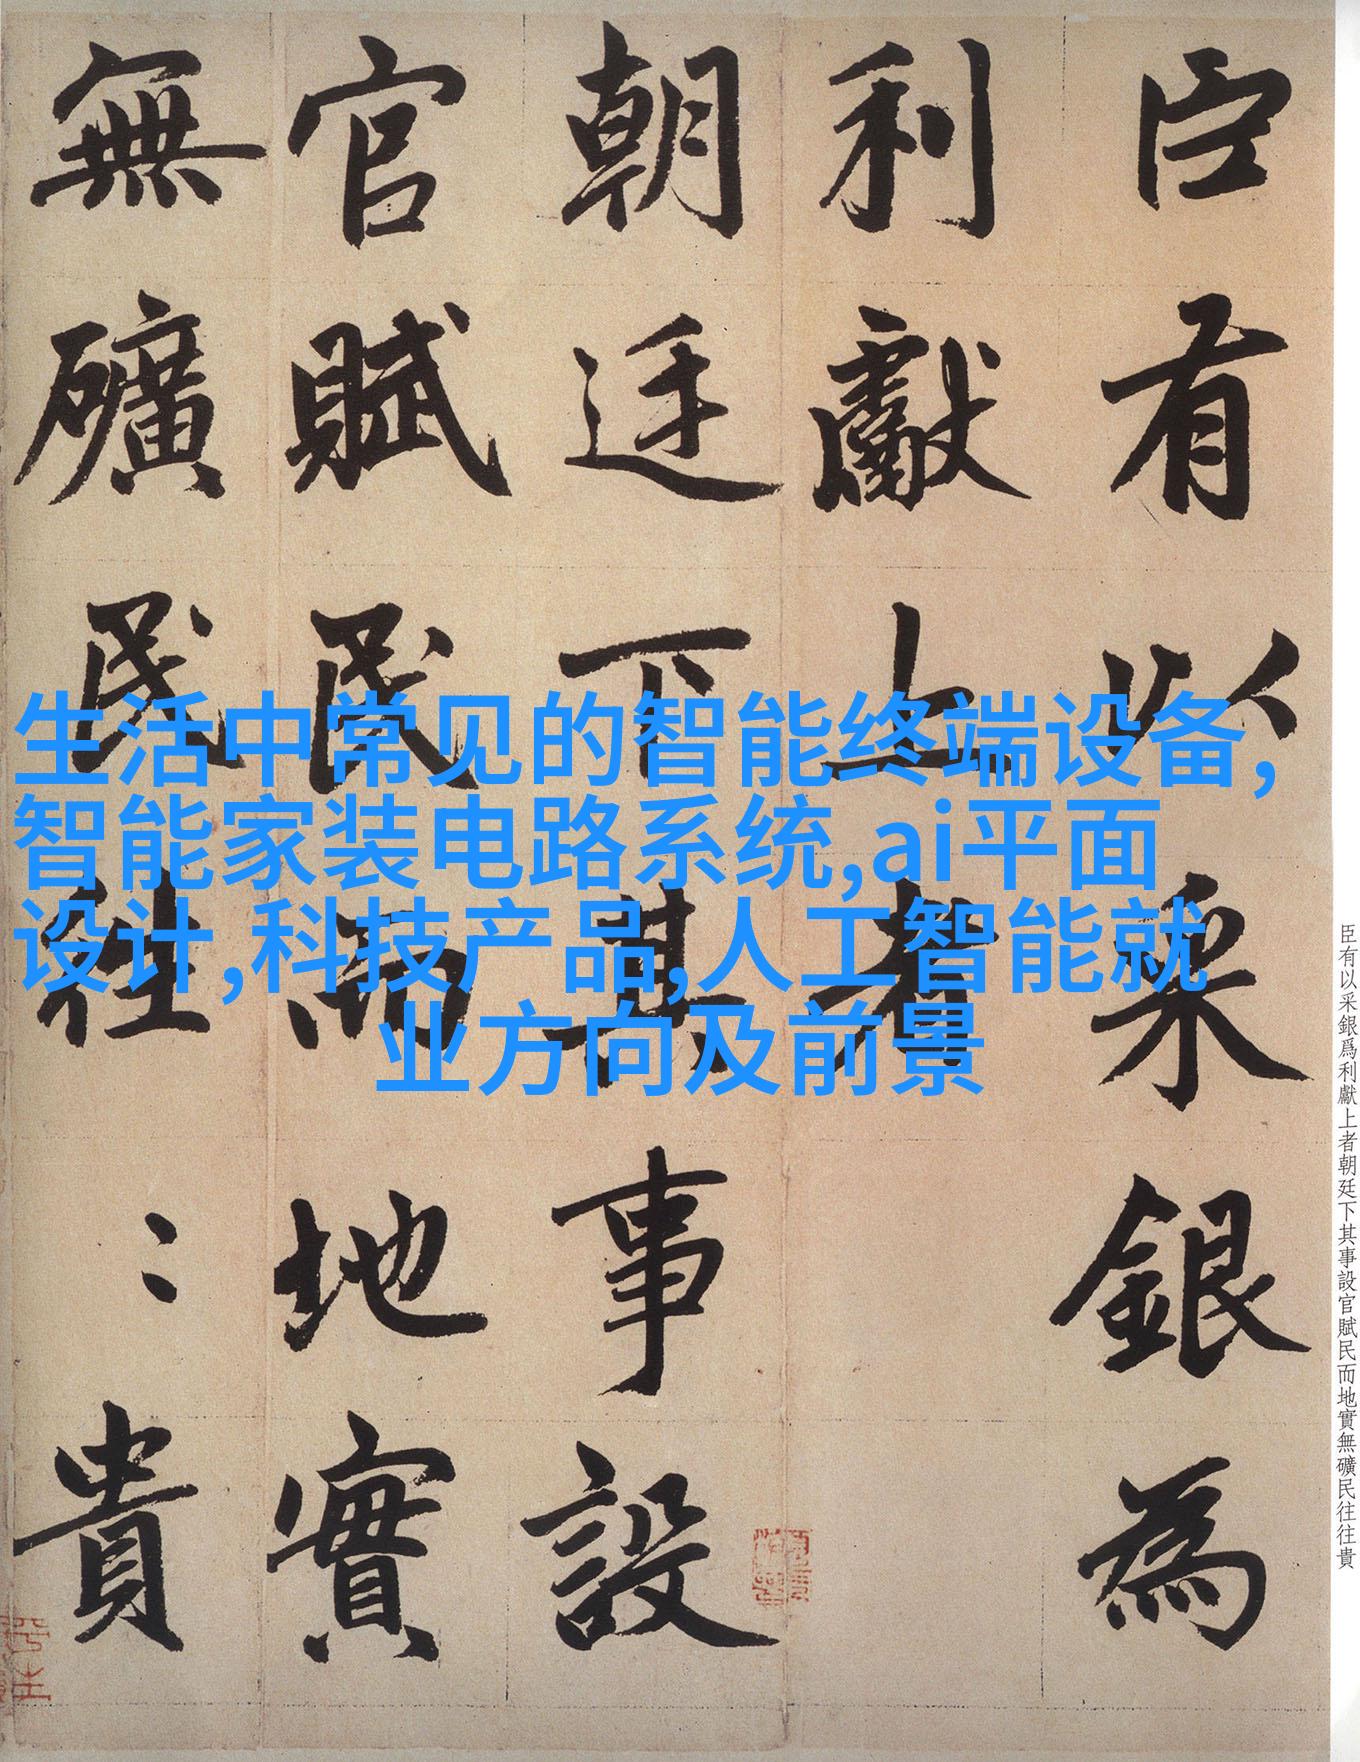 臣有以采銀為
利獻上者
朝廷下其事設
官賦民而地實
無礦民往〻貴
生活中常见的智能终端设备,
智能家装电路系统,ai平面
设计,科技产品,人工智能就
业方向及前景
臣有以采銀爲利獻上者朝廷下其事設官賦民而地實無礦民往往貴